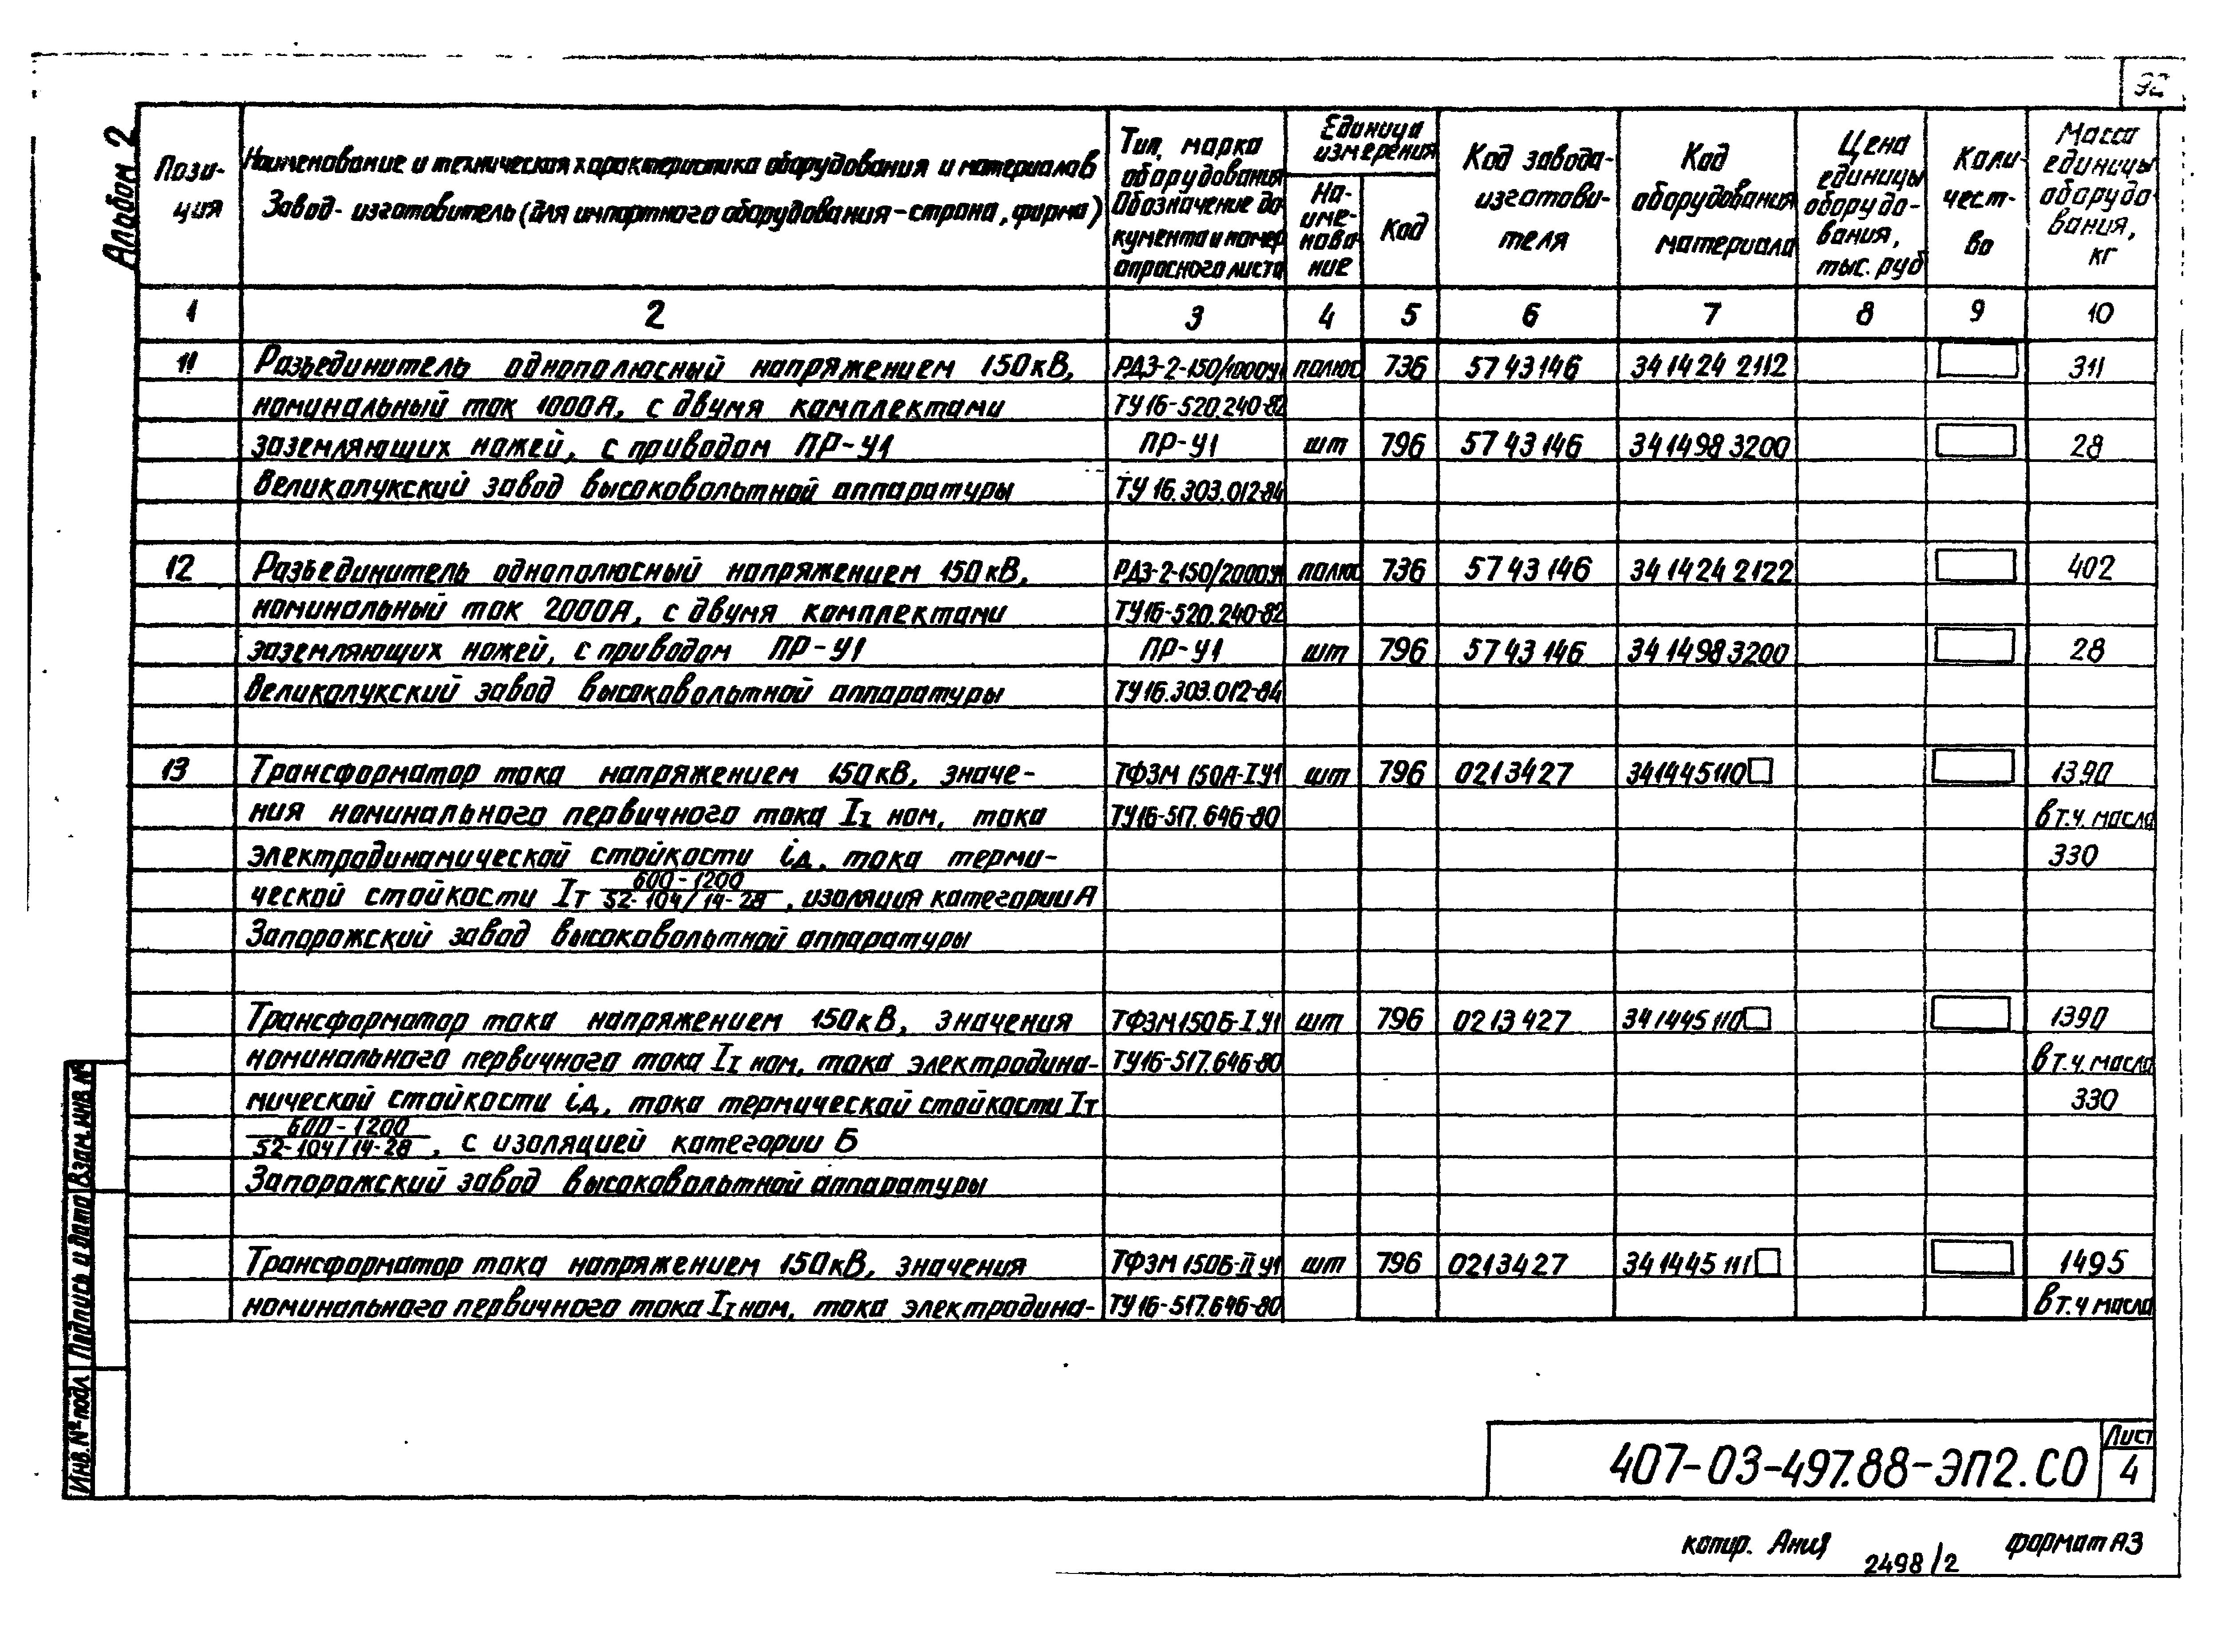 92
Альбом 2
Пози-
ция
Наименование и техническая характеристика оборудования и материалов
Завод-изготовитель (для импортного оборудования-страна, фирма)
Тип, марка
оборудования
Обозначение до-
кумента и номер
опросного листа
Единица
измерения
На-
име-
нова-
ние
Код
Код завода-
изготови-
теля
Код
оборудования
материала
Цена
единицы
оборудо-
вания,
тыс. руб
Коли-
чест-
во
Масса
единицы
оборудо-
вания,
кг
1 2 3 4 5 6 7 8 9 10
11 Разъединитель однополюсный напряжением 150кВ, РДЗ-2-150/1000У1 полюс 736 5743146 34 1424 2112 311
номинальный ток 1000А, с двумя комплектами ТУ16-520.240-82
заземляющих ножей, с приводом ПР-У1 ПР-У1 шт 796 5743146 34 1498 3200 28
Великолукский завод высоковольтной аппаратуры ТУ 16.303.012-84
12 Разъединитель однополюсный напряжением 150кВ, РДЗ-2-150/2000У1 полюс 736 5743146 34 1424 2122 402
номинальный ток 2000А, с двумя комплектами ТУ16-520.240-82
заземляющих ножей, с приводом ПР-У1 ПР-У1 шт 796 5743146 34 1498 3200 28
Великолукский завод высоковольтной аппаратуры ТУ16.303.012-84
13 Трансформатор тока напряжением 150кВ, значе- ТФЗМ 150А-I У1 шт 796 0213427 341445110□ 1390
ния номинального первичного тока I₁ ном, тока ТУ16-517.646-80 в т.ч. масла
электродинамической стойкости iд, тока терми- 330
ческой стойкости Iт 600-1200 / 52-104/14-28, изоляция категории А
Запорожский завод высоковольтной аппаратуры
Трансформатор тока напряжением 150кВ, значения ТФЗМ150Б-I У1 шт 796 0213427 341445110□ 1390
номинального первичного тока I₁ ном, тока электродина- ТУ16-517.646-80 в т.ч. масла
мической стойкости iд, тока термической стойкости Iт 330
600-1200 / 52-104/14-28, с изоляцией категории Б
Запорожский завод высоковольтной аппаратуры
Трансформатор тока напряжением 150кВ, значения ТФЗМ 150Б-II У1 шт 796 0213427 341445111□ 1495
номинального первичного тока I₁ ном, тока электродина- ТУ16-517.646-80 в т.ч масла
Инв. № подл Подпись и дата Взам. инв. №
407-03-497.88-ЭП2.СО
Лист
4
копир. Аниз
2498/2
формат А3